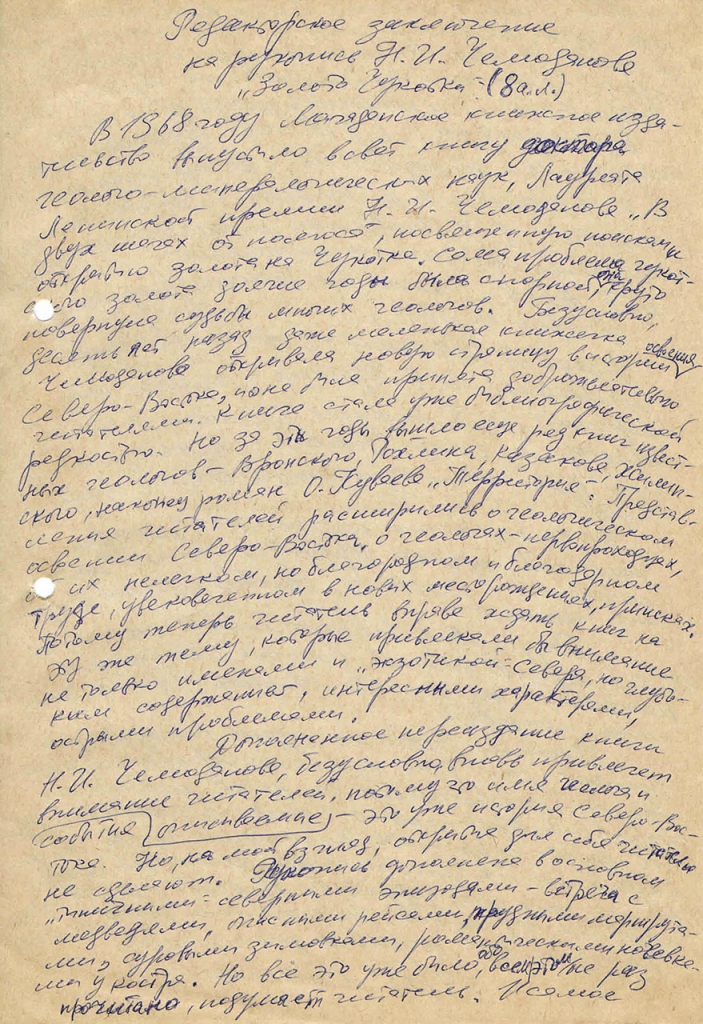 Редакторское заключение
на рукопись Н. И. Чемоданова
„Золото Чукотки" (8 а.л.)
В 1968 году Магаданское книжное изда-
тельство выпустило в свет книгу доктора
геолого-минералогических наук, Лауреата
Ленинской премии Н. И. Чемоданова „В
двух шагах от полюса", посвященную поискам и
открытию золота на Чукотке. Сама проблема чукот-
ского золота долгие годы была спорной, она круто
повернула судьбы многих геологов. Безусловно,
десять лет назад даже маленькая книжечка
Чемоданова открывала новую страницу в истории освоения
Северо-Востока, и она была принята доброжелательно
читателем. Книга стала уже библиографической
редкостью. Но за эти годы вышло еще ряд книг извест-
ных геологов – Вронского, Рохлина, Казакова, Жилин-
ского, наконец роман О. Куваева „Территория". Представ-
ления читателей расширились о геологическом
освоении Северо-Востока, о геологах-первопроходцах,
об их нелегком, но благородном и благодарном
труде, увековеченном в новых месторождениях, приисках.
Потому теперь читатель вправе ждать книг на
эту же тему, которые привлекали бы внимание
не только именами и „экзотикой" Севера, но глубо-
ким содержанием, интересными характерами,
острыми проблемами.
Дополненное переиздание книги
Н. И. Чемоданова, безусловно, вновь привлечет
внимание читателей, потому что имя геолога и
события описываемые – это уже история Северо-Вос-
тока. Но, на мой взгляд, открытия для себя читатель
не сделает. Рукопись дополнена в основном
„типичными" северными эпизодами – встреча с
медведями, опасными рейсами, трудными маршрута-
ми, суровыми зимовками, романтическими ночевка-
ми у костра. Но все это уже было, обо всем этом не раз
прочитано, подумает читатель. И самое